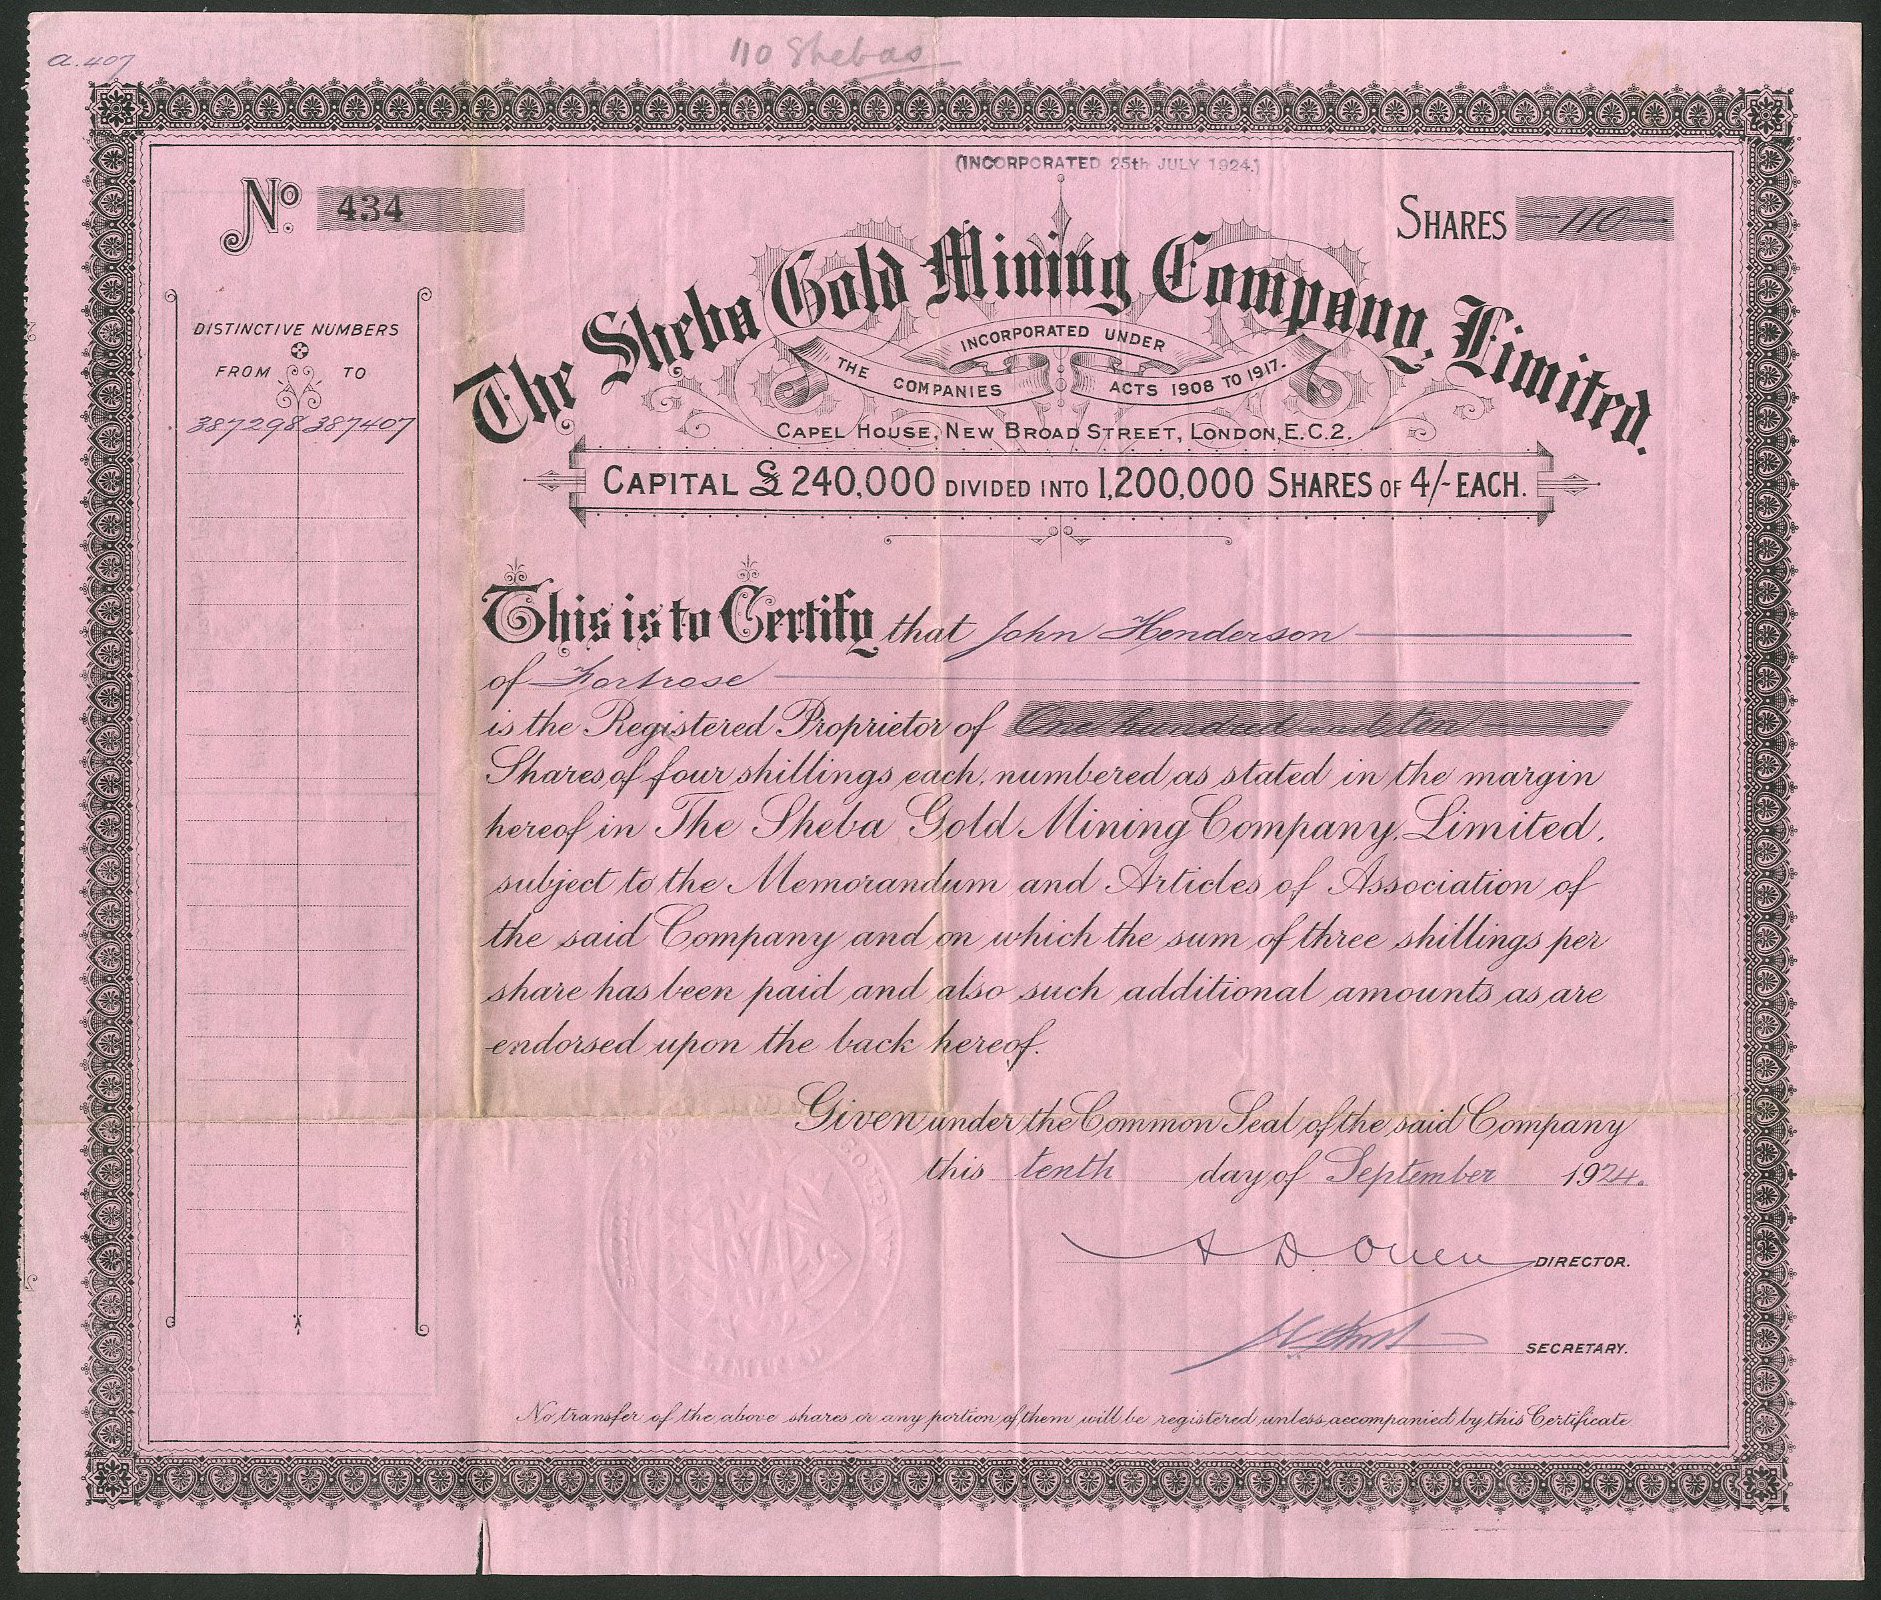 a. 407
110 Shebas
(INCORPORATED 25th JULY 1924.)
No. 434
SHARES 110
The Sheba Gold Mining Company, Limited.
INCORPORATED UNDER
THE COMPANIES ACTS 1908 TO 1917.
CAPEL HOUSE, NEW BROAD STREET, LONDON, E.C.2.
CAPITAL £240,000 DIVIDED INTO 1,200,000 SHARES OF 4/- EACH.
DISTINCTIVE NUMBERS
FROM TO
387298 387407
This is to Certify that John Henderson
of Fortrose
is the Registered Proprietor of One hundred and ten
Shares of four shillings each, numbered as stated in the margin
hereof in The Sheba Gold Mining Company, Limited,
subject to the Memorandum and Articles of Association of
the said Company and on which the sum of three shillings per
share has been paid and also such additional amounts as are
endorsed upon the back hereof.
Given under the Common Seal of the said Company
this tenth day of September 1924.
A D. Owen DIRECTOR.
SECRETARY.
No transfer of the above shares or any portion of them will be registered unless accompanied by this Certificate
COMPANY
LIMITED